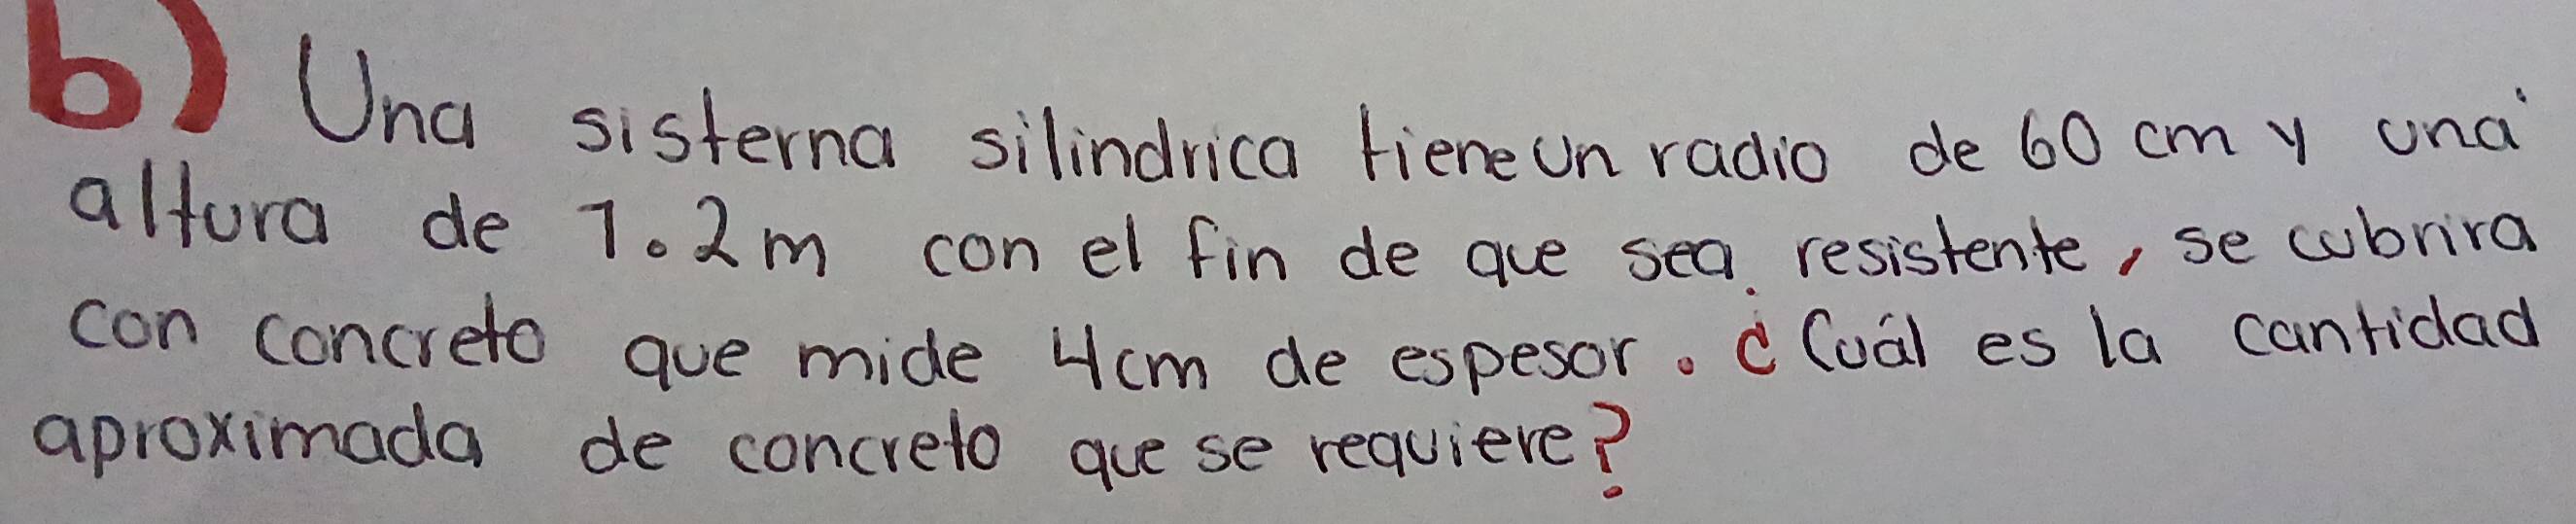 b) Una sisterna silindrica tiene un radio de 60 cm y una
altura de 1.2m con el fin de que sea resistente, se cubrira
con concreto que mide 4cm de espesor. ¿Cuál es la cantidad
aproximada de concreto que se requiere?